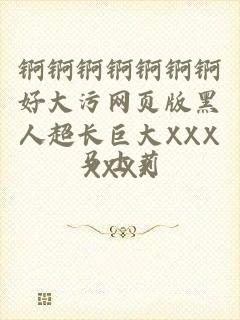 锕锕锕锕锕锕锕
好大污网页版黑
人超长巨大XXX
莉